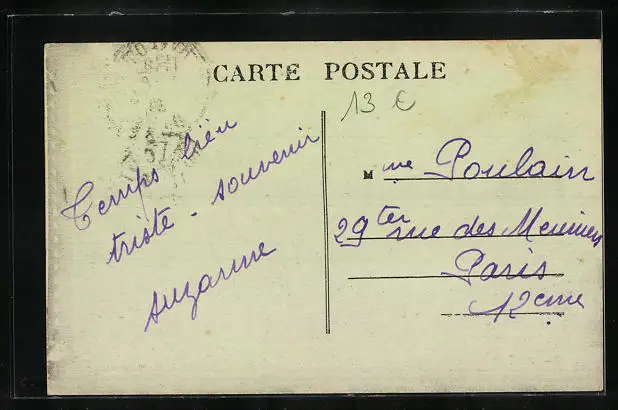 CARTE POSTALE
13 €
Temps bien
triste - souvenir
Suzanne
Mme Poulain
29 ter rue des Meuniers
Paris
12eme